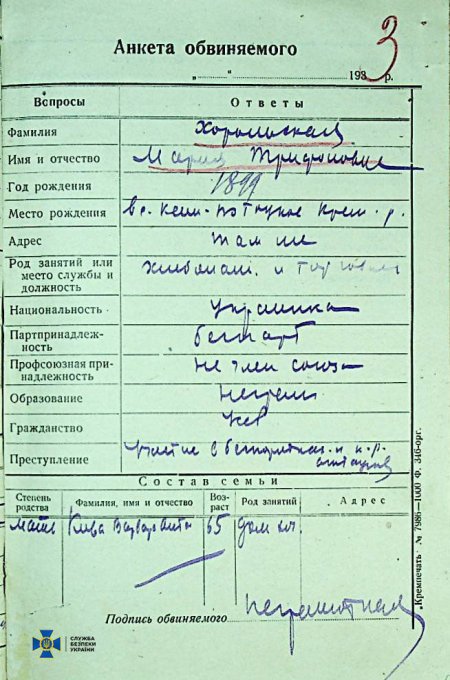 Анкета обвиняемого
" " 1933 р.
Вопросы Ответы
Фамилия Хорольская
Имя и отчество Мария Трифоновна
Год рождения 1899
Место рождения Крем. р.
Адрес там же
Род занятий или место службы и должность
Национальность Украинка
Партпринадлежность беспарт
Профсоюзная принадлежность не член союза
Образование
Гражданство
Преступление участие в
Состав семьи
Степень родства Фамилия, имя и отчество Возраст Род занятий Адрес
мать Варвара 65 дом
Подпись обвиняемого неграмотная
„Кремпечать" № 7986—1000 Ф. 346-орг.
СЛУЖБА
БЕЗПЕКИ
УКРАЇНИ